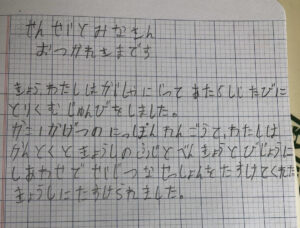 せんせいとみなさん
おつかれさまです
きょうわたしはがしゃにじってあたらしいたびに
とりくむじゅんびをしました。
かげつのにっぽんれんごうで、わたしは
かんとくときょうしのふじとべんきょうとびじょうに
しあわせで なせっしょんをたすけてくれた
きょうしにたすけられました。